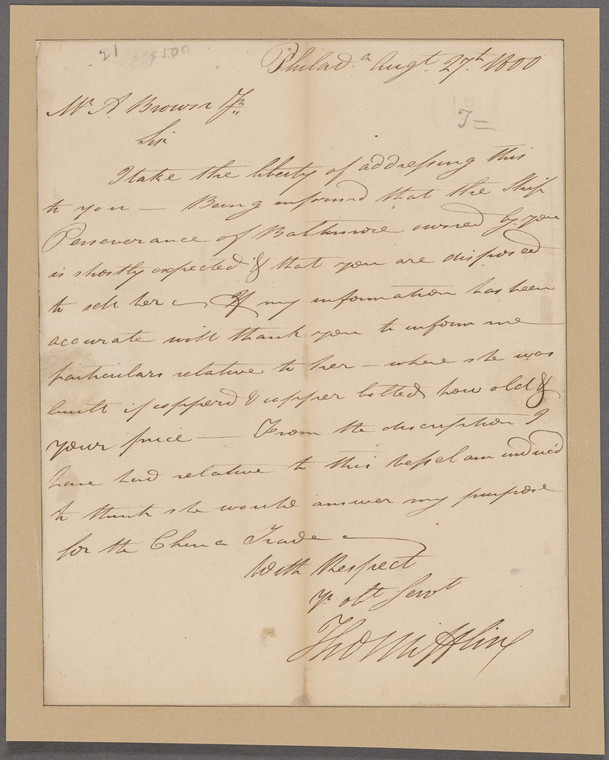 21 $5.00
Philad.a Augt. 27th. 1800
Mr. A Brown Jr.
T=
Sir
I take the liberty of addressing this
to you — Being informed that the Ship
Perseverance of Baltimore owned by you
is shortly expected & that you are disposed
to sell her — If my information has been
accurate will thank you to inform me
particulars relative to her — where she was
built if copperd & copper bolted how old &
your price — From the discription I
have had relative to this vessel am induced
to think she would answer my purpose
for the China Trade —
With Respect
Yr obt Servt
Tho Mifflin